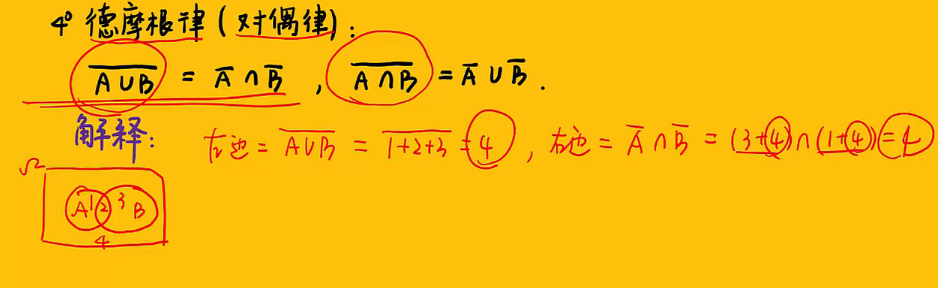 4° 德摩根律(对偶律):
\overline{A∪B} = \overline{A} ∩ \overline{B} , \overline{A∩B} = \overline{A} ∪ \overline{B} .
解释: 左边 = \overline{A∪B} = \overline{1+2+3} = 4 , 右边 = \overline{A} ∩ \overline{B} = (3+4)∩(1+4) = 4
Ω
A 1 2 3 B
4